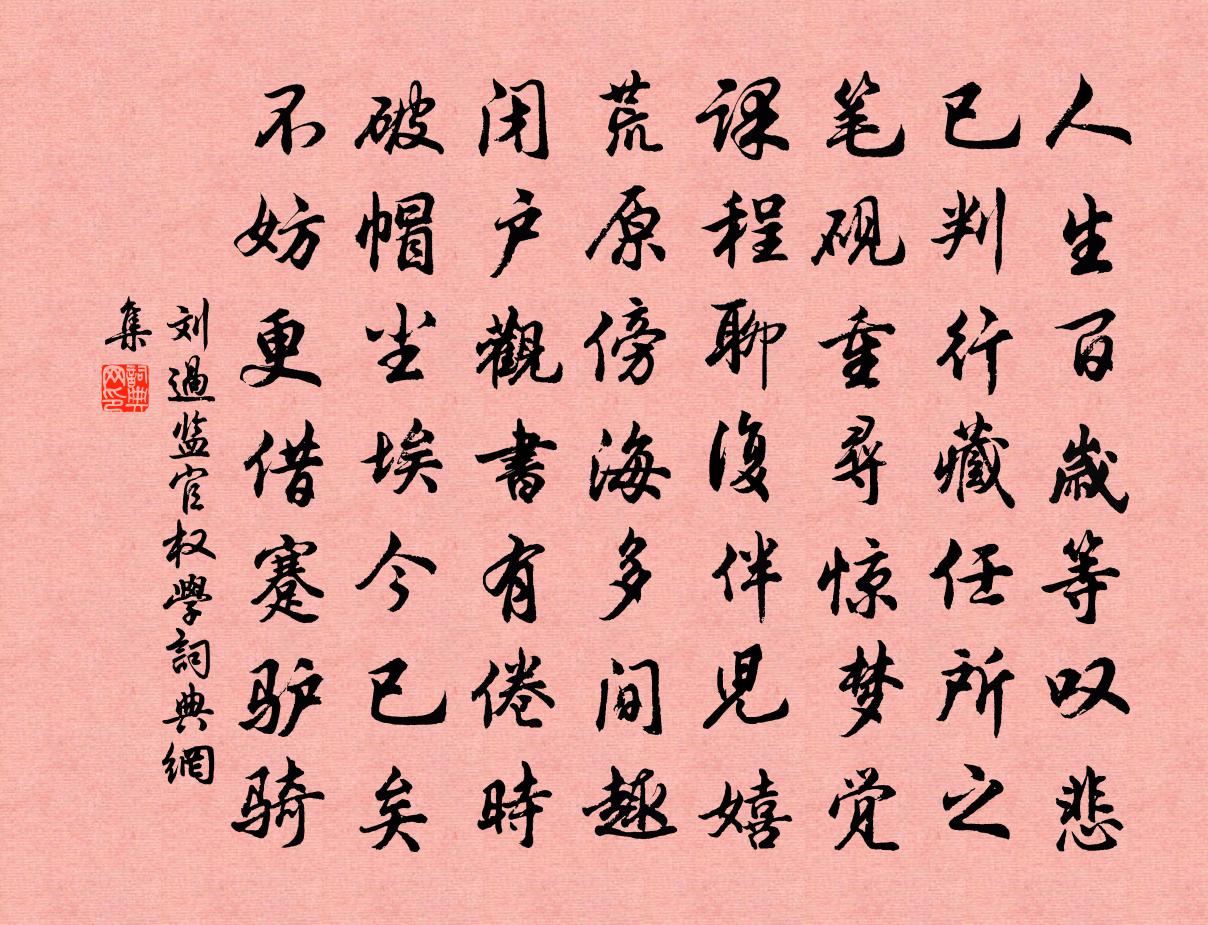 人生百歲等叹悲
已判行藏任所之
笔砚重尋惊梦觉
课程聊復伴兒嬉
荒原傍海多间趣
闭户觀書有倦時
破帽尘埃今已矣
不妨更借蹇驴骑
刘過监官权學詞典網
集
詞典网印